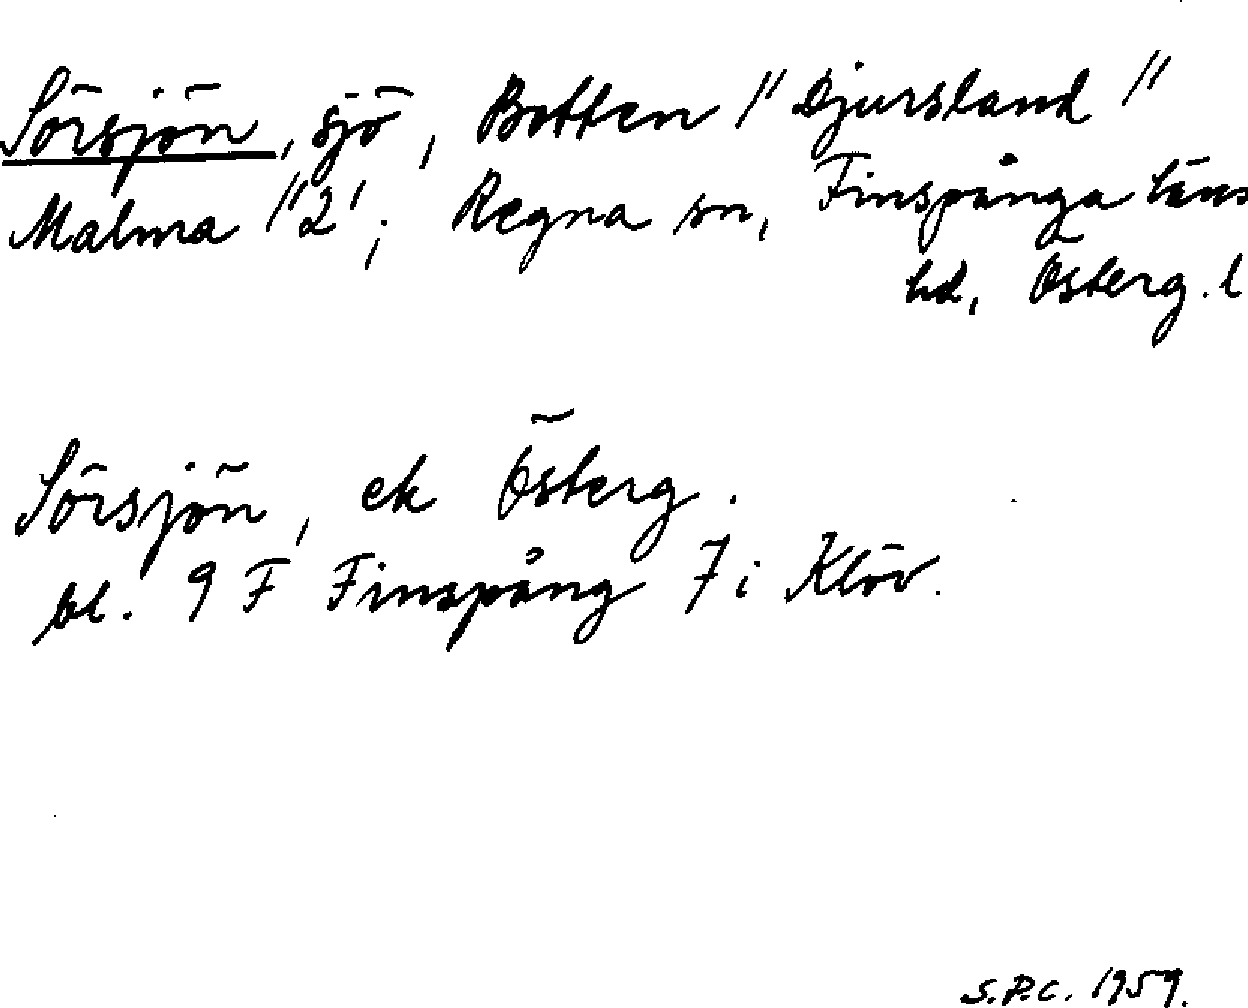 Sörsjön, sjö, Botten // Djursland //
Malma // 2'; Regna sn, Finspånga läns
hd, Österg. l
Sörsjön, ek Österg.
bl. 9 F Finspång 7 i Klöv.
S.P.C. 1959.